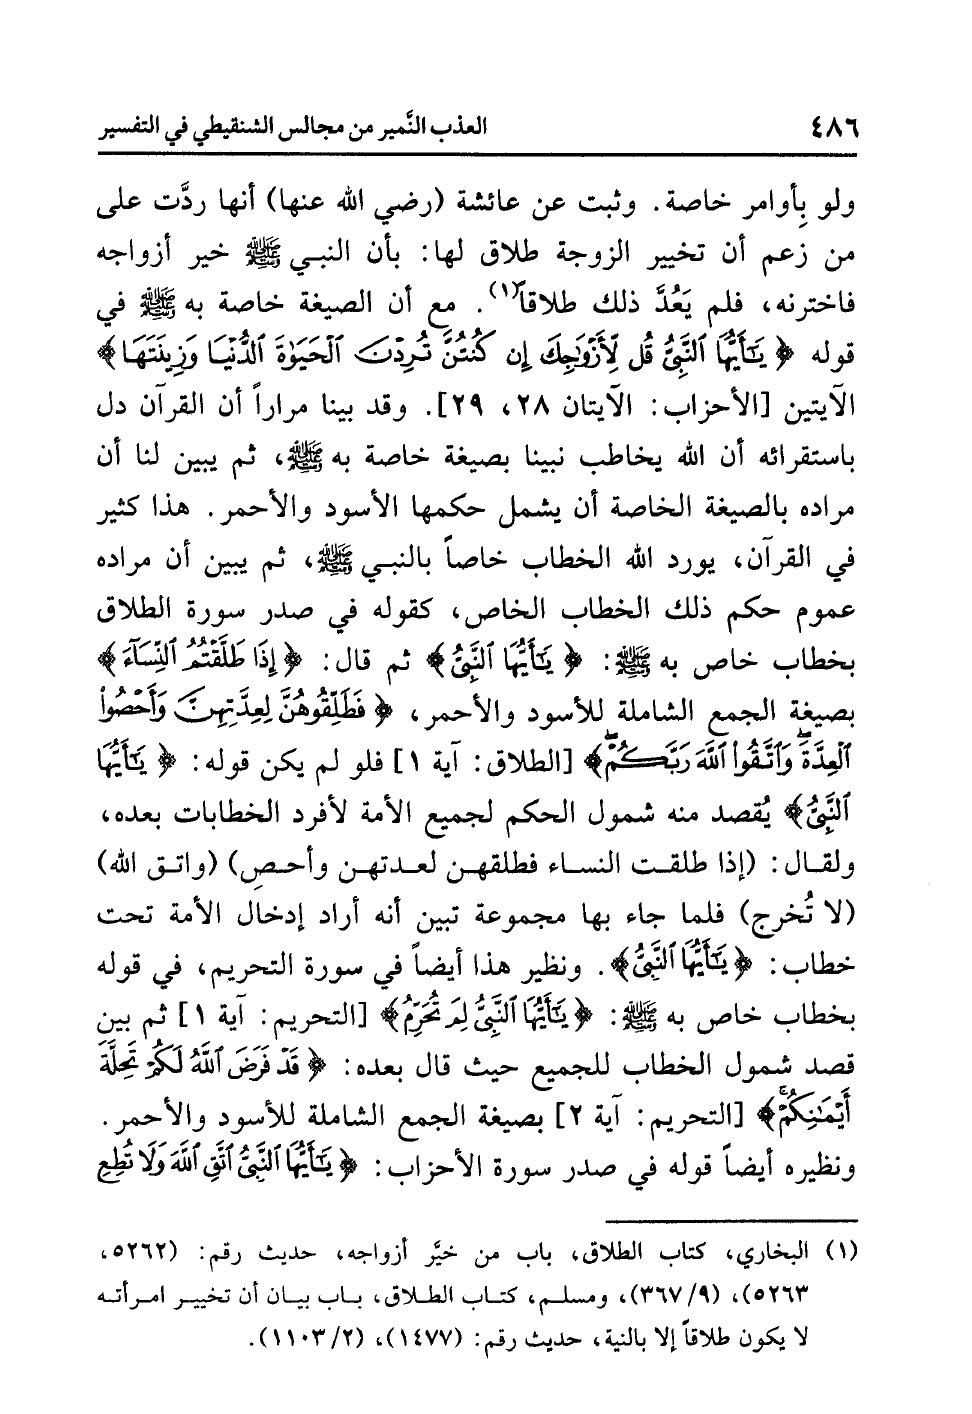 ٤٨٦ العذب النَّمير من مجالس الشنقيطي في التفسير
ولو بِأوامر خاصة. وثبت عن عائشة (رضي الله عنها) أنها ردَّت على
من زعم أن تخيير الزوجة طلاق لها: بأن النبي ﷺ خير أزواجه
فاخترنه، فلم يَعُدَّ ذلك طلاقاً(١). مع أن الصيغة خاصة به ﷺ في
قوله ﴿يَٰٓأَيُّهَا ٱلنَّبِيُّ قُل لِّأَزْوَٰجِكَ إِن كُنتُنَّ تُرِدْنَ ٱلْحَيَوٰةَ ٱلدُّنْيَا وَزِينَتَهَا﴾
الآيتين [الأحزاب: الآيتان ٢٨، ٢٩]. وقد بينا مراراً أن القرآن دل
باستقرائه أن الله يخاطب نبينا بصيغة خاصة به ﷺ، ثم يبين لنا أن
مراده بالصيغة الخاصة أن يشمل حكمها الأسود والأحمر. هذا كثير
في القرآن، يورد الله الخطاب خاصاً بالنبي ﷺ، ثم يبين أن مراده
عموم حكم ذلك الخطاب الخاص، كقوله في صدر سورة الطلاق
بخطاب خاص به ﷺ: ﴿يَٰٓأَيُّهَا ٱلنَّبِيُّ﴾ ثم قال: ﴿إِذَا طَلَّقْتُمُ ٱلنِّسَآءَ﴾
بصيغة الجمع الشاملة للأسود والأحمر، ﴿فَطَلِّقُوهُنَّ لِعِدَّتِهِنَّ وَأَحْصُوا۟
ٱلْعِدَّةَ ۖ وَٱتَّقُوا۟ ٱللَّهَ رَبَّكُمْ ۖ﴾ [الطلاق: آية ١] فلو لم يكن قوله: ﴿يَٰٓأَيُّهَا
ٱلنَّبِيُّ﴾ يُقصد منه شمول الحكم لجميع الأمة لأفرد الخطابات بعده،
ولقال: (إذا طلقت النساء فطلقهن لعدتهن وأحصِ) (واتق الله)
(لا تُخرج) فلما جاء بها مجموعة تبين أنه أراد إدخال الأمة تحت
خطاب: ﴿يَٰٓأَيُّهَا ٱلنَّبِيُّ﴾. ونظير هذا أيضاً في سورة التحريم، في قوله
بخطاب خاص به ﷺ: ﴿يَٰٓأَيُّهَا ٱلنَّبِيُّ لِمَ تُحَرِّمُ﴾ [التحريم: آية ١] ثم بين
قصد شمول الخطاب للجميع حيث قال بعده: ﴿قَدْ فَرَضَ ٱللَّهُ لَكُمْ تَحِلَّةَ
أَيْمَٰنِكُمْ ۚ﴾ [التحريم: آية ٢] بصيغة الجمع الشاملة للأسود والأحمر.
ونظيره أيضاً قوله في صدر سورة الأحزاب: ﴿يَٰٓأَيُّهَا ٱلنَّبِيُّ ٱتَّقِ ٱللَّهَ وَلَا تُطِعِ
(١) البخاري، كتاب الطلاق، باب من خيَّر أزواجه، حديث رقم: (٥٢٦٢،
٥٢٦٣)، (٩/٣٦٧)، ومسلم، كتاب الطلاق، باب بيان أن تخيير امرأته
لا يكون طلاقاً إلا بالنية، حديث رقم: (١٤٧٧)، (٢/١١٠٣).